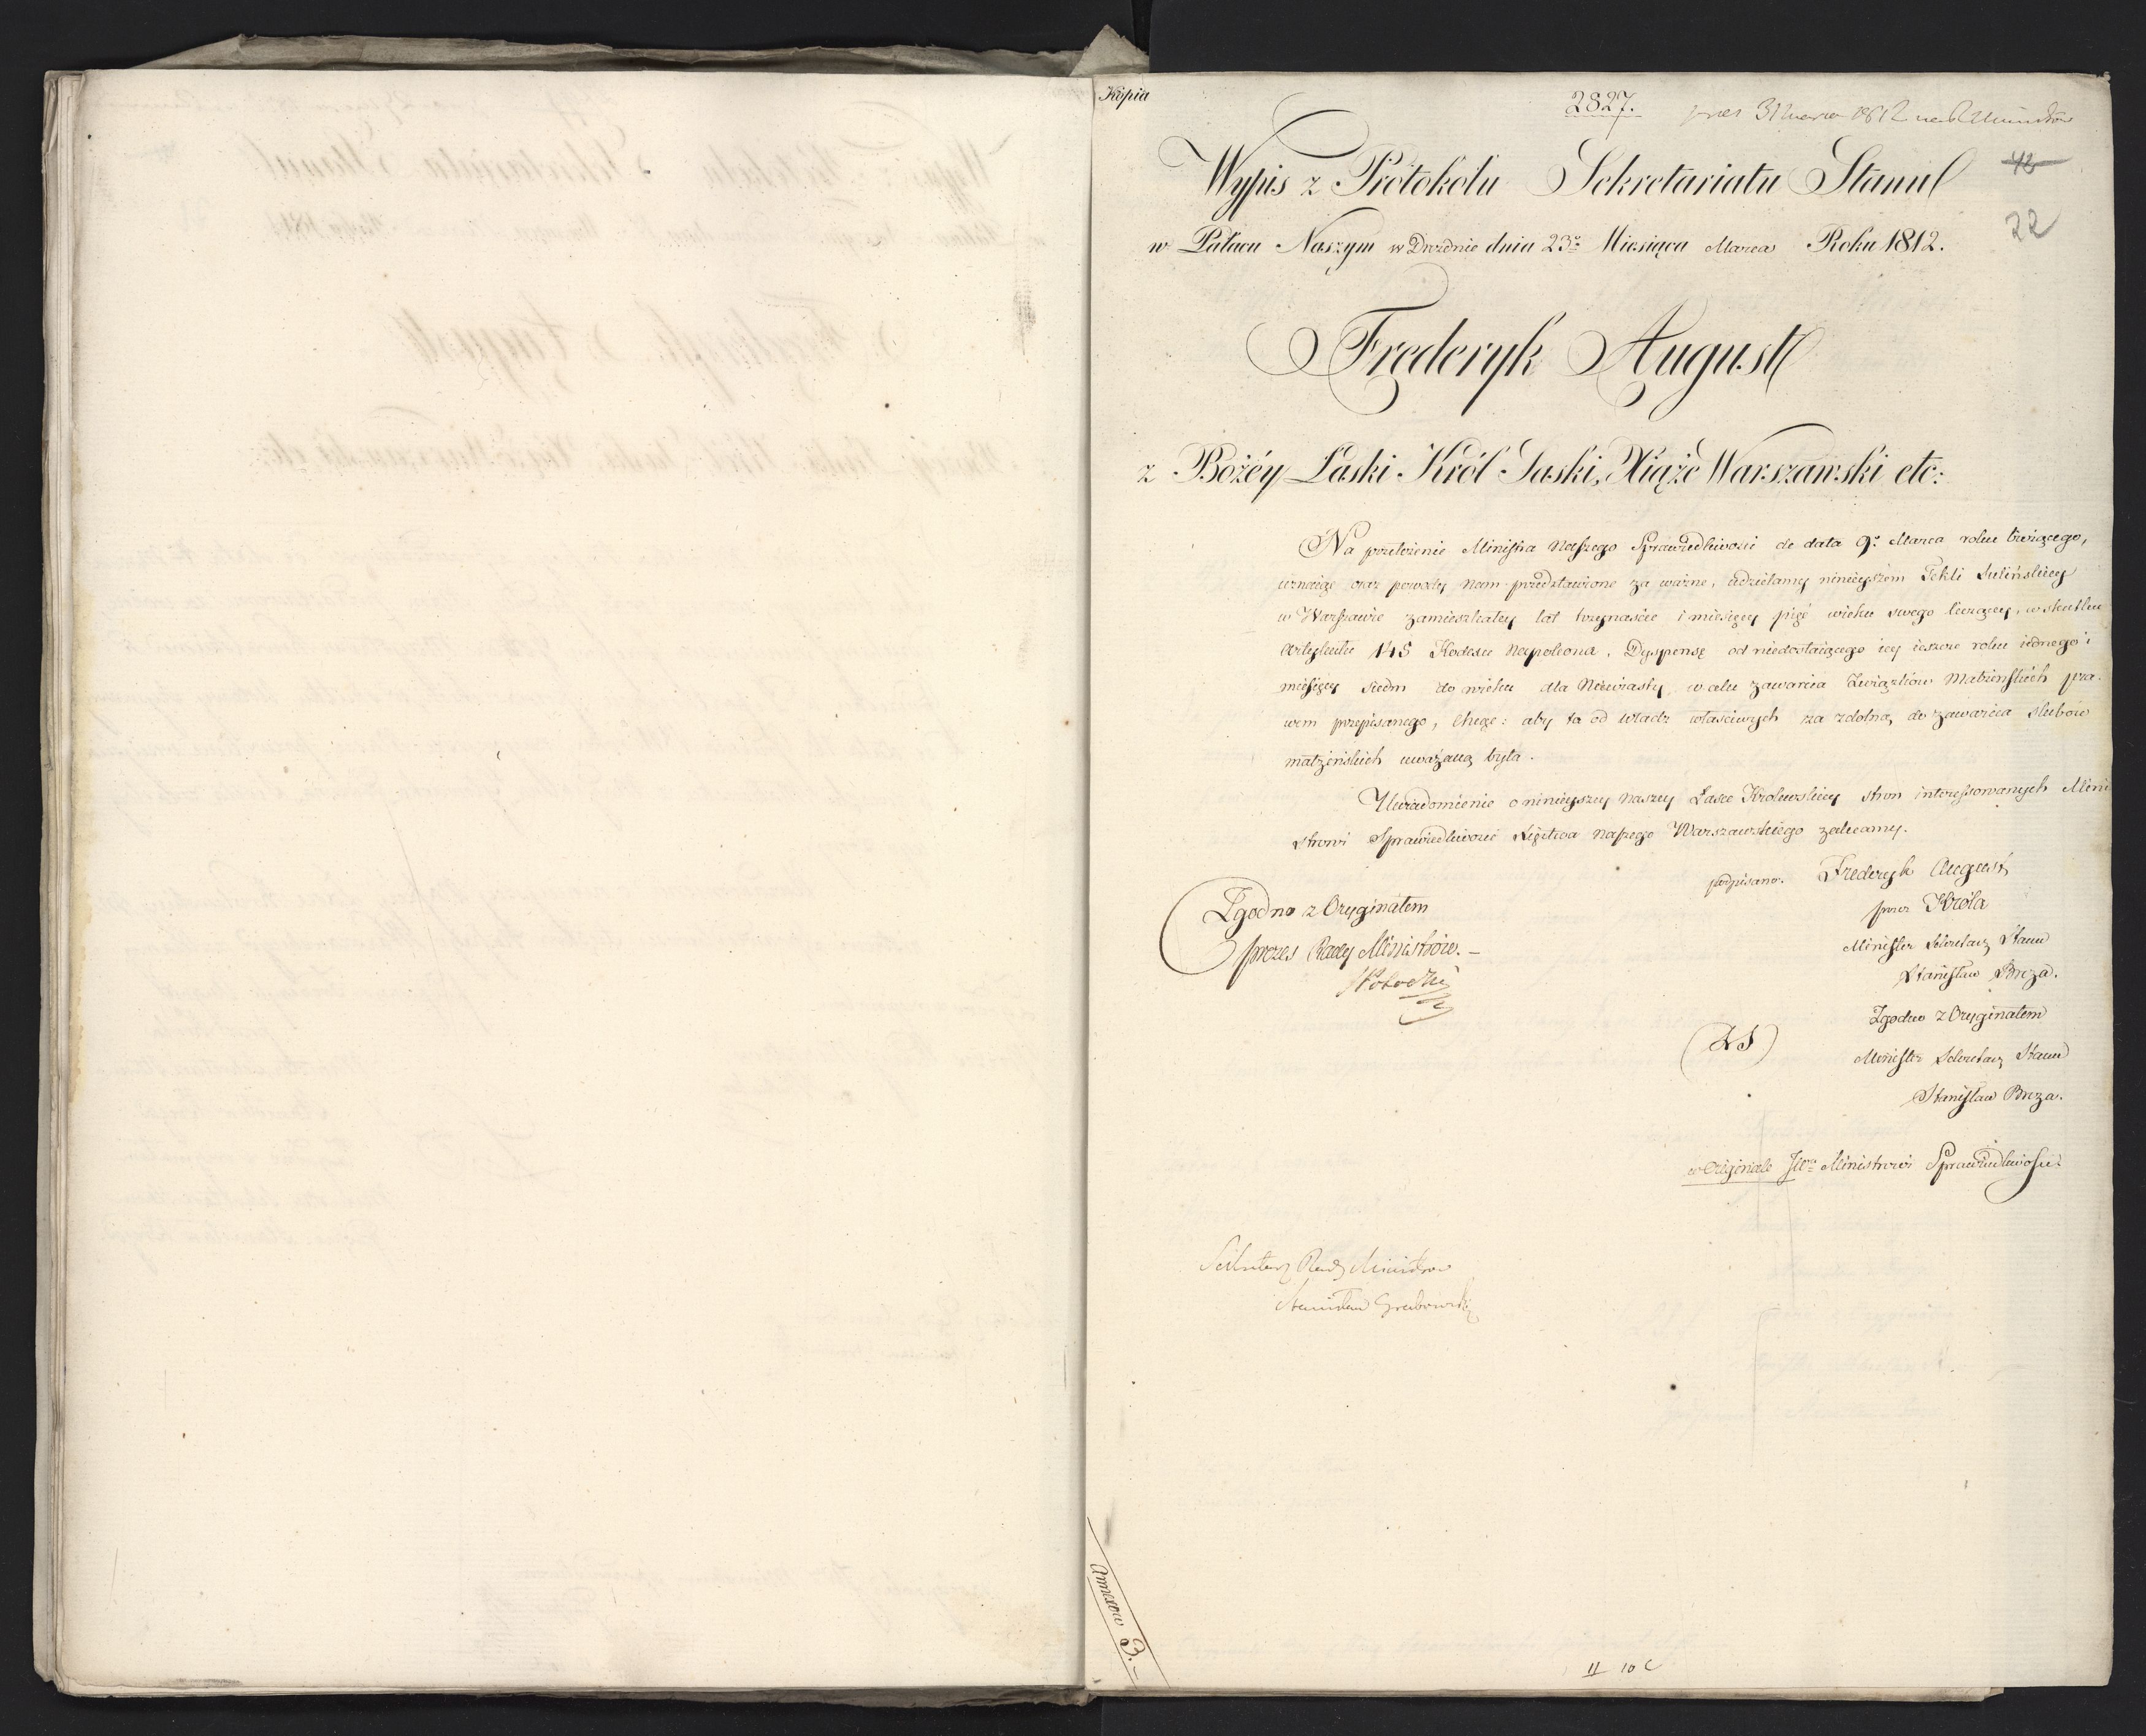 Kopia
2827.
42
22
Wypis z Protokołu Sekretariatu Stanu
w Pałacu Naszym w Dreźnie dnia 23º Miesiąca Marca Roku 1812.
Frederyk August
z Bożéy Łaski Król Saski, Xiąże Warszawski etc:
Na przełożenie Ministra Naszego Sprawiedliwości de data 9º Marca roku bieżącego,
uznaiąc oraz powody Nam przedstawione za ważne, udzielamy ninieyszem Tekli
w Warszawie zamieszkałey lat trzynaście i miesięcy pięć wieku swego liczącey, w skutku
Artykułu 145 Kodexu Napoleona, Dyspensę od niedostaiącego iey ieszcze roku iednego i
miesięcy siedm do wieku dla Niewiasty w celu zawarcia Związków Małżeńskich pra-
wem przepisanego, Chcąc: aby ta od Władz właściwych za zdolną do zawarcia ślubów
małżeńskich uważaną była.
Uwiadomienie o ninieyszey Naszey Łasce Królewskiey stron interessowanych Mini
strowi Sprawiedliwości Xięstwa Naszego Warszawskiego zalecamy.
podpisano. Frederyk August
przez Króla
Minister Sekretarz Stanu
Stanisław Breza.
Zgodno z Oryginałem
Prezes Rady Ministrów. –
(LS)
Zgodno z Oryginałem
Minister Sekretarz Stanu
Stanisław Breza.
w Originale JWmu Ministrowi Sprawiedliwości
Sekretarz Rady Ministrów
Stanisław Grabowski
Annexow 3. –
11 10 C